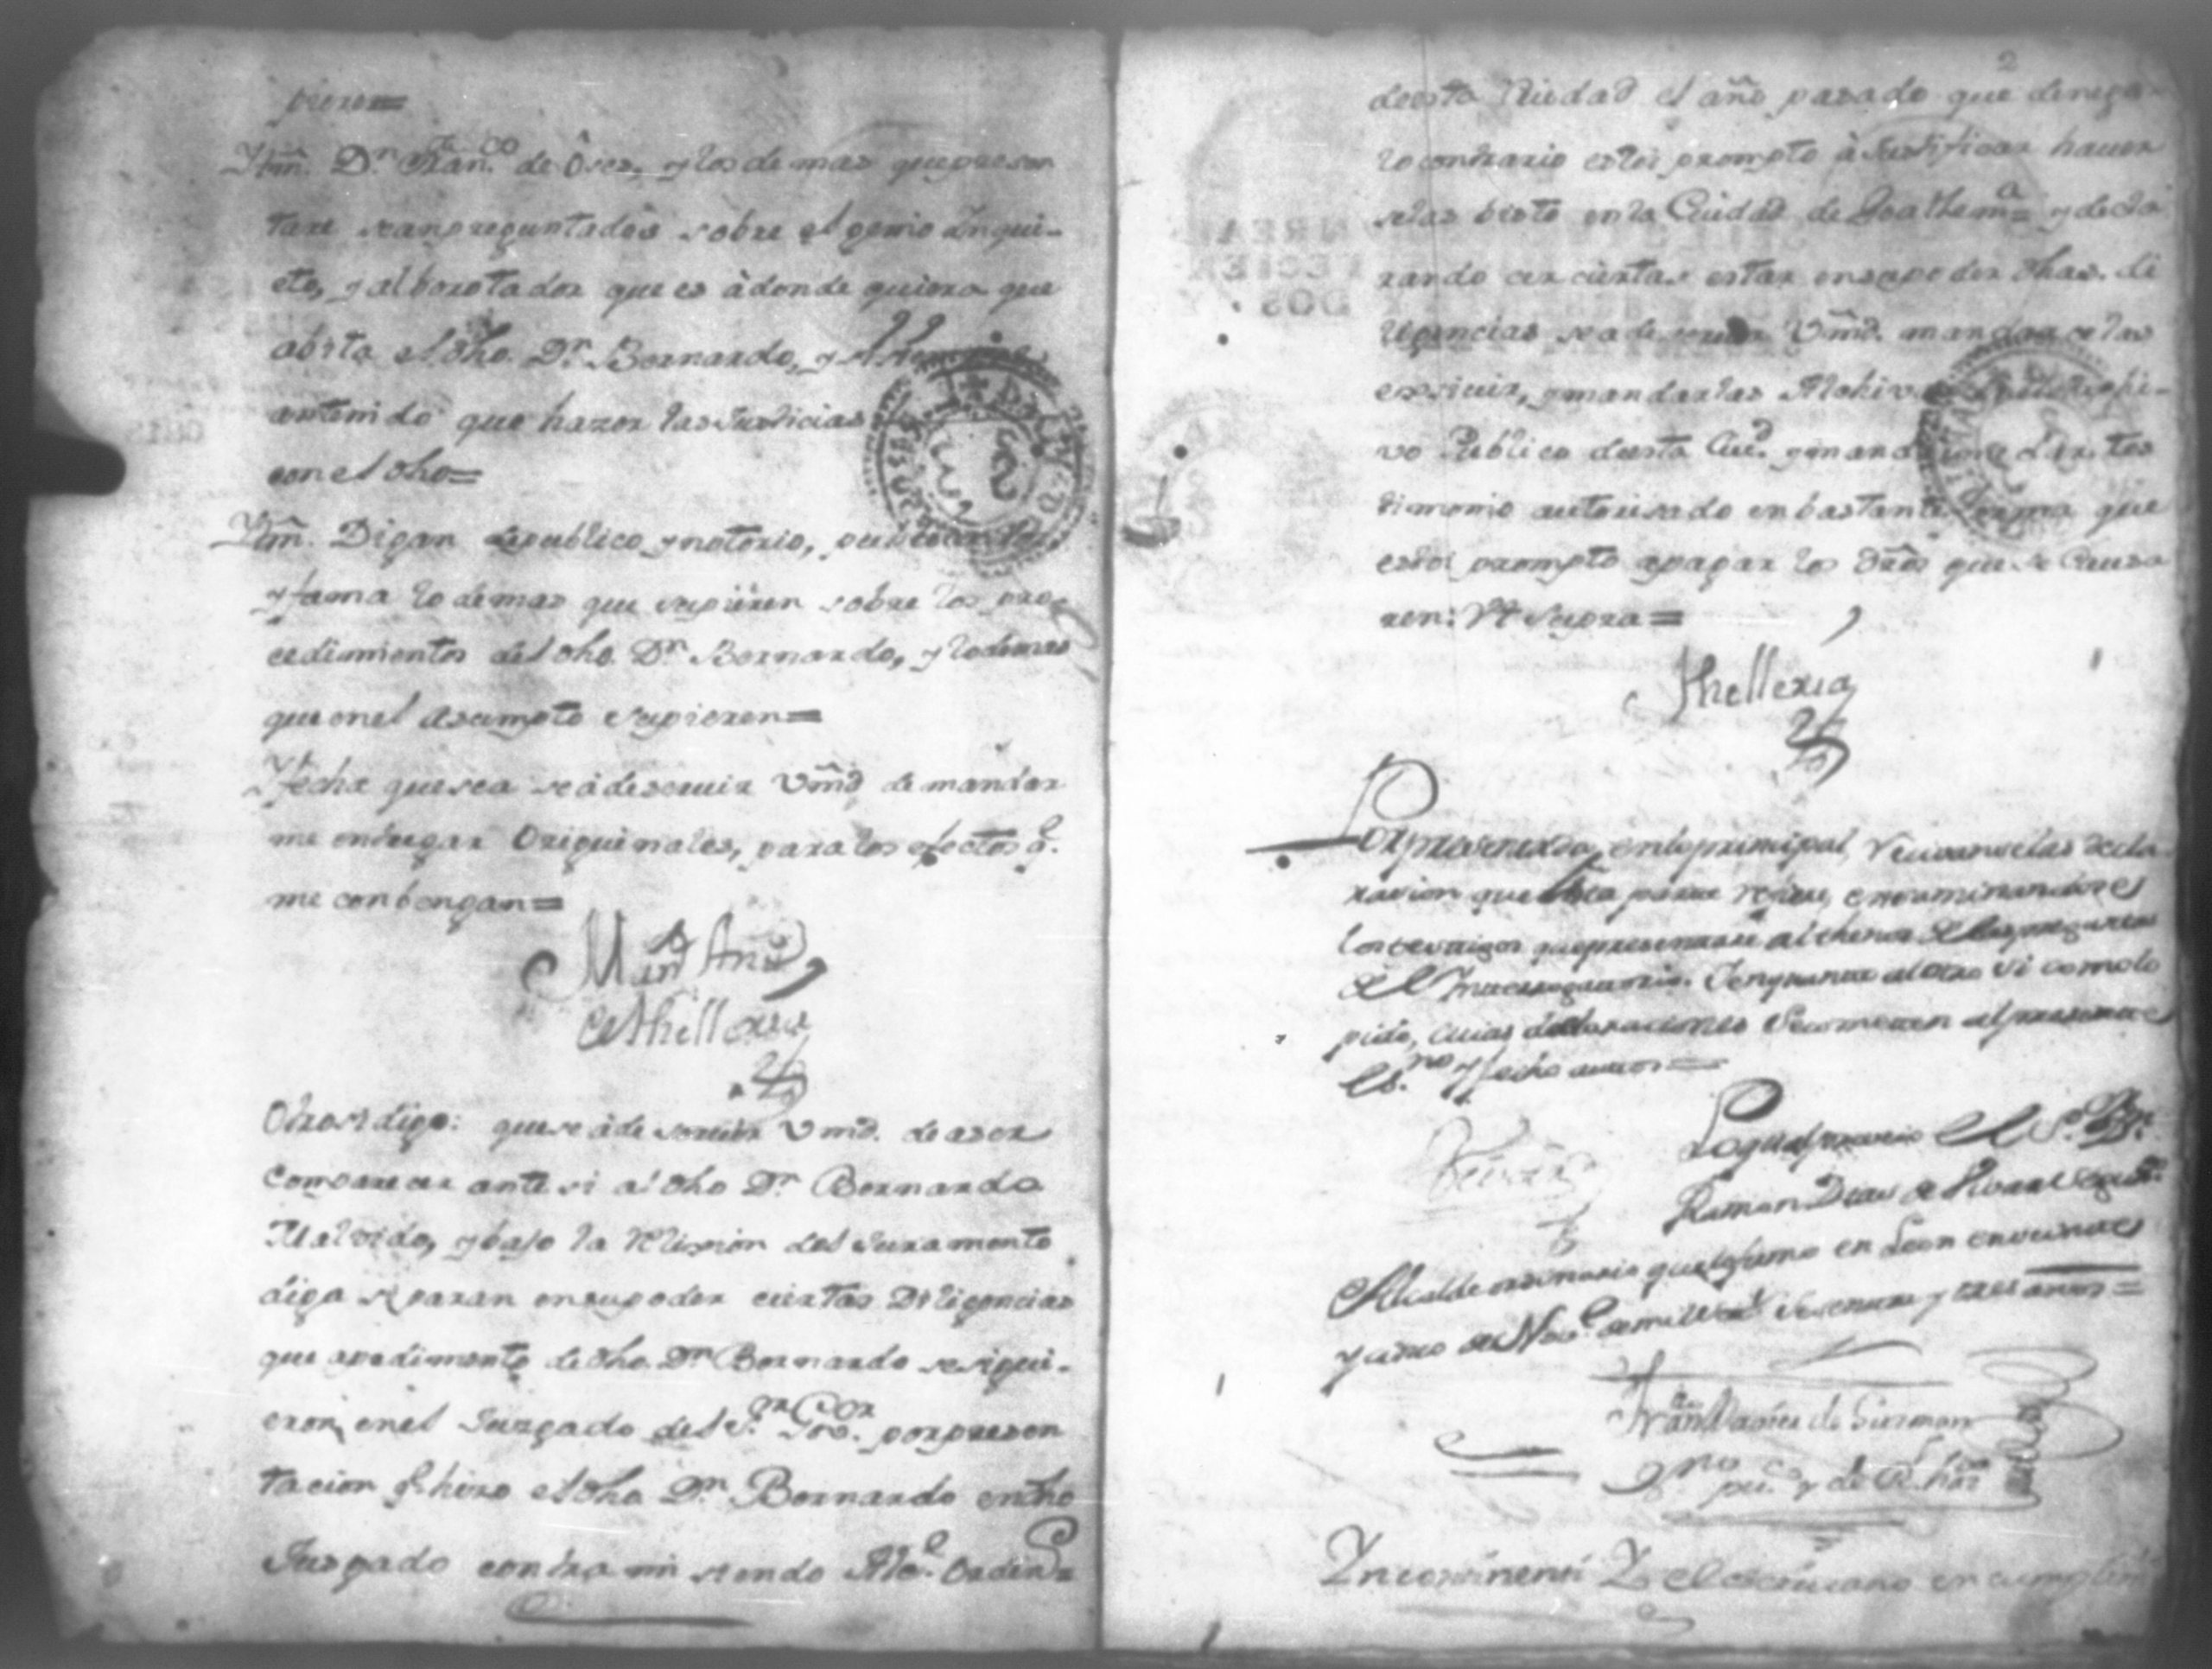 pieren=
Ittm. Dn. Franco. de Oses, y los demas que presen
tare seran preguntados sobre el genio inqui-
eto, y alborotador que es à donde quiera que
abita el dho. Dn. Bernardo, y
antenido que hazer las Justicias
con el dho=
Ittm. Digan de publico y notorio,
y fama lo demas que supieren sobre los pro-
cedimientos del dho. Dn. Bernardo, y lo demas
que en el asumpto supieren=
Yfecha que sea se à de seruir Vmd. de mandar
me entregar Originales, para los efectos q.
me conbengan=
Man Anto
de Thelleria
Otrosi digo: que se à de seruir Vmd. de aser
Comparecer ante si al dho Dn. Bernardo
Malvido, y bajo la Relixion del Juramento
diga si paran en su poder ciertas Diligencias
que a pedimento de dho. Dn. Bernardo se sigui-
eron, en el Jusgado del Sr. Gor. por presen
tacion q. hizo el dho Dn. Bernardo en dho
Jusgado contra mi siendo Alce. Orden
2
de esta Ciudad el año pasado que de negar
lo contrario estoi prompto à Justificar hauer
selas bisto en la Ciudad de Goathema. y decla
rando ser ciertas estar en su poder dhas. di
ligencias se a de seruir Vmd. mandar se las
exsiuir, y mandarlas Archivar
vo Publico de esta Ciud. y mandarme dar tes
timonio autorisado en bastante forma que
estoi prompto a pagar los dros que se Causa
ren: Vt Supra=
Thelleria
Por presentada, en lo principal, reciuanse las decla
racion que esta parte refiere, examinandose
los testigos que presentare al thenor de las preguntas
de el Interrogatorio. Yen quanto al otro si como lo
pide, cuias declaraciones se cometen al presente
Es.no y fecho autos=
Lo qual proueio el Sr. Dn.
Ramon Dias de Viuar Alcalde
Alcalde ordinario que lo firmo en Leon en veinte
y cinco de Noe. de mil setes. sesenta y tres años=
Fran Xavier de Guzman
pu.co y de
Yncontinenti Yo el escriuano en cumplim